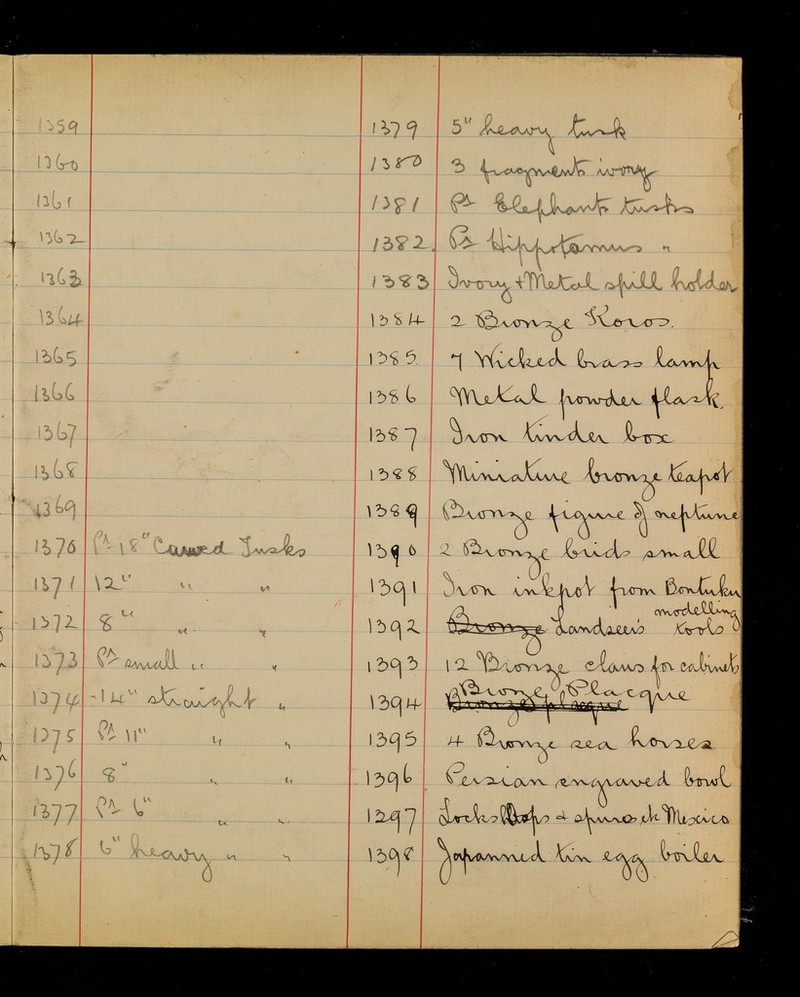 1359
1360
1361
1362
1363
1364
1365
1366
1367
1368
1369
1370 Pr 18" Curved Tusks
1371 12" " "
1372 8" " "
1373 Pr small " "
1374 -14" straight "
1375 Pr 11" " "
1376 8" " "
1377 Pr 6" " "
1378 6" heavy " "
1379 5" heavy tusk
1380 3 fragments ivory
1381 Pr Elephants tusks
1382 Pr Hippotamus "
1383 Ivory + Metal spill holder
1384 2 Bronze Koros.
1385 7 Wicked brass lamp
1386 Metal powder flask.
1387 Iron tinder box
1388 Miniature bronze teapot
1389 Bronze figure of neptune
1390 2 Bronze birds small
1391 Iron inkpot from Bontuku
1392 Bronze Landseers modelling tools
1393 12 Bronze claws for cabinets
1394 Bronze Placque
Bronze placque
1395 4 Bronze sea horses
1396 Persian engraved bowl
1297 Locks + spurs etc Mexico
1398 Japanned tin egg boiler